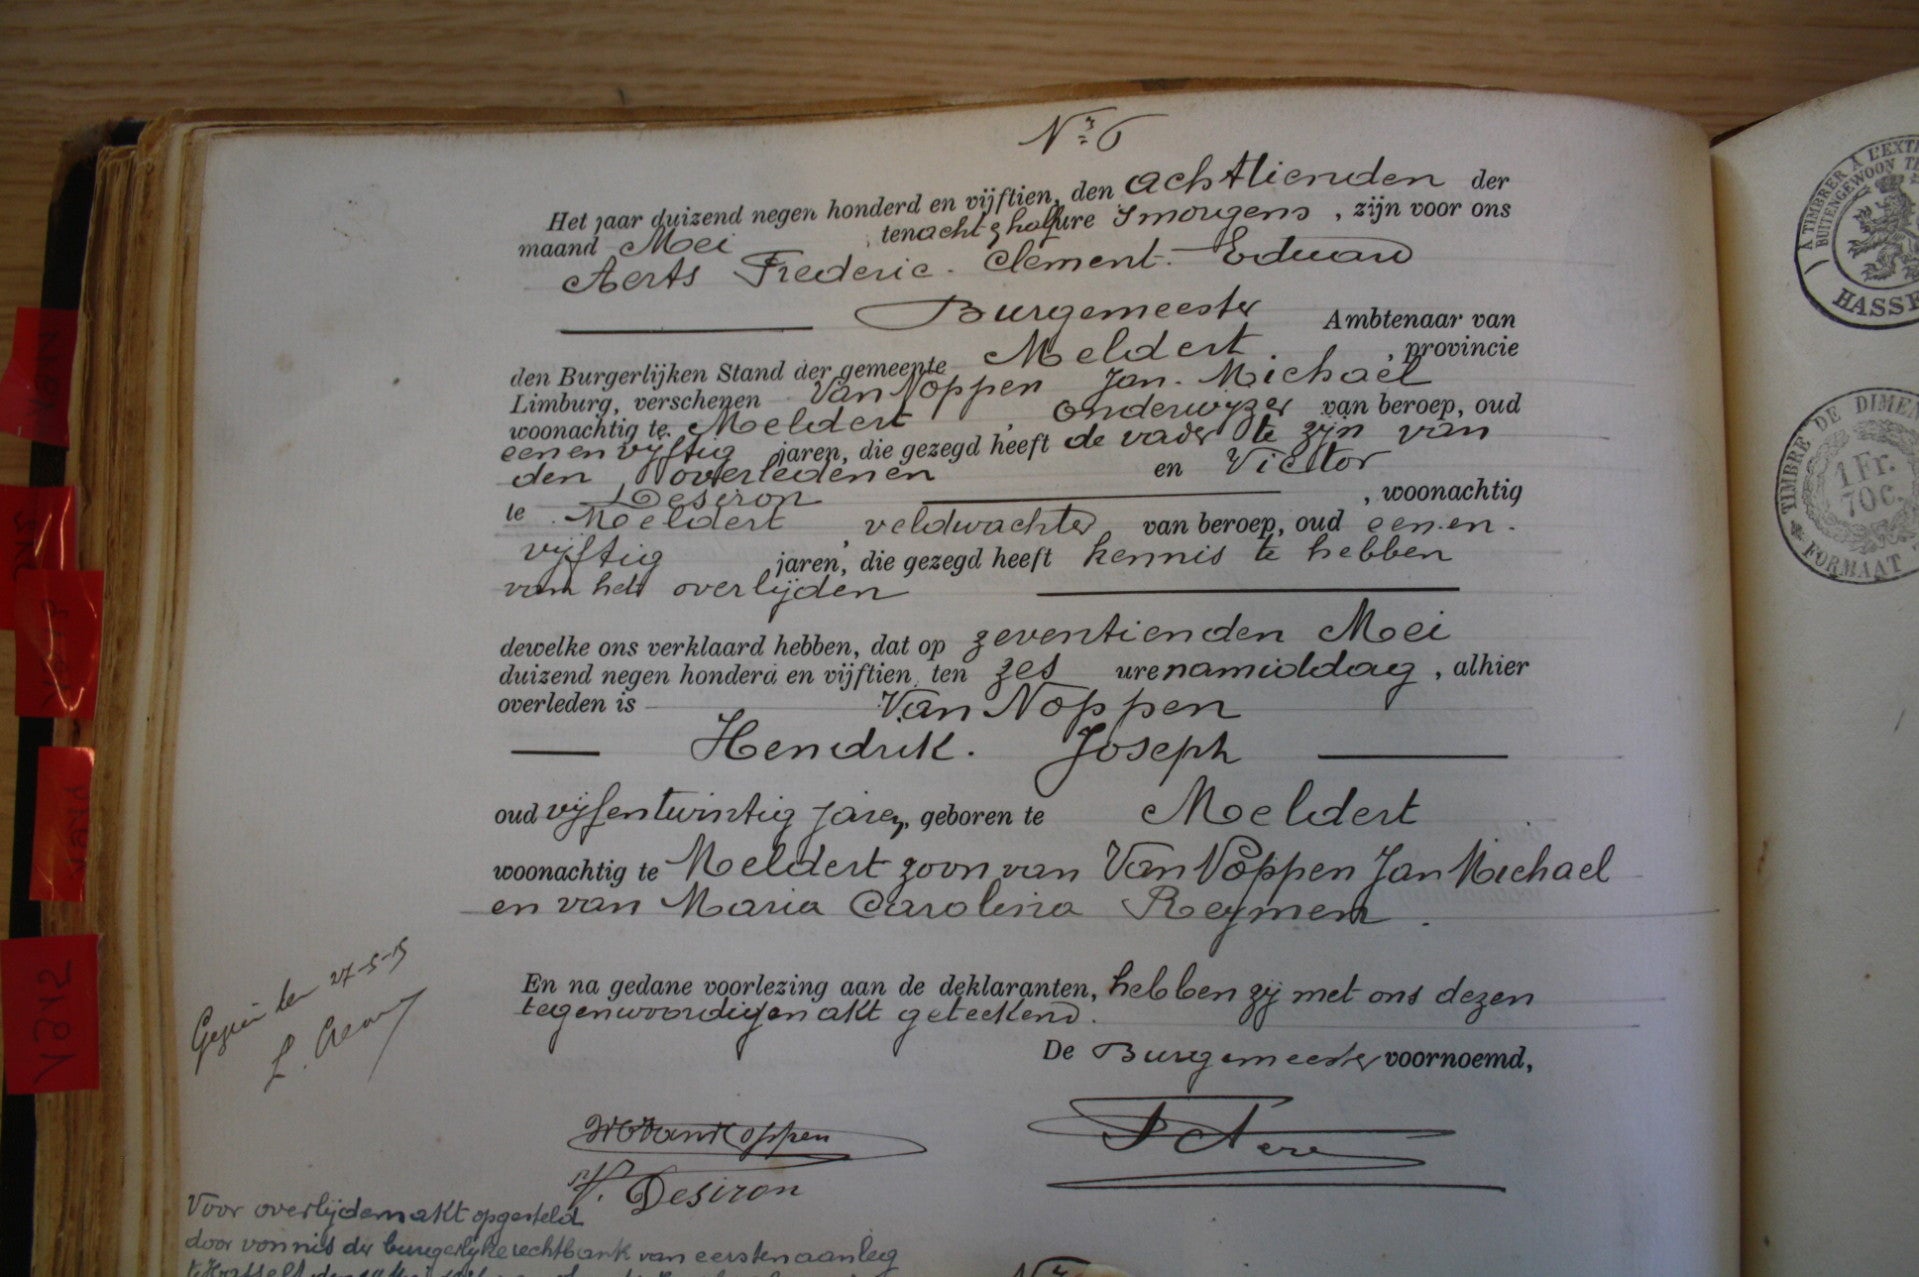 N.r 6
Het jaar duizend negen honderd en vijftien, den achttienden der
maand Mei ten acht & half ure 's morgens, zijn voor ons
Aerts Frederic. Clement. Eduard
Burgemeester Ambtenaar van
den Burgerlijken Stand der gemeente Meldert. , provincie
Limburg, verschenen Van Noppen Jan. Michaël
woonachtig te Meldert , onderwyzer van beroep, oud
een en vijftig jaren, die gezegd heeft de vader te zijn van
den overledenen en Victor
Desiron , woonachtig
te Meldert , veldwachter van beroep, oud een en
vijftig jaren, die gezegd heeft kennis te hebben
van het overlijden
dewelke ons verklaard hebben, dat op zeventienden Mei
duizend negen honderd en vijftien, ten zes ure namiddag, alhier
overleden is Van Noppen
Hendrik. Joseph
oud vijfentwintig jaren, geboren te Meldert
woonachtig te Meldert zoon van Van Noppen Jan Michael
en van Maria Carolina Reymen.
En na gedane voorlezing aan de deklaranten, hebben zij met ons dezen
tegenwoordigen akt geteekend.
De Burgemeester voornoemd,
Gezien den 27-5-15
L.
Van Noppen
V. Desiron
Voor overlijdemakt opgesteld
door vonnis der burgerlijke rechtbank van eersten aanleg
te Hasselt
À TIMBRER À L'EXT
BUITENGEWOON
HASSE
TIMBRE DE DIMEN
1 Fr.
70 c.
FORMAAT